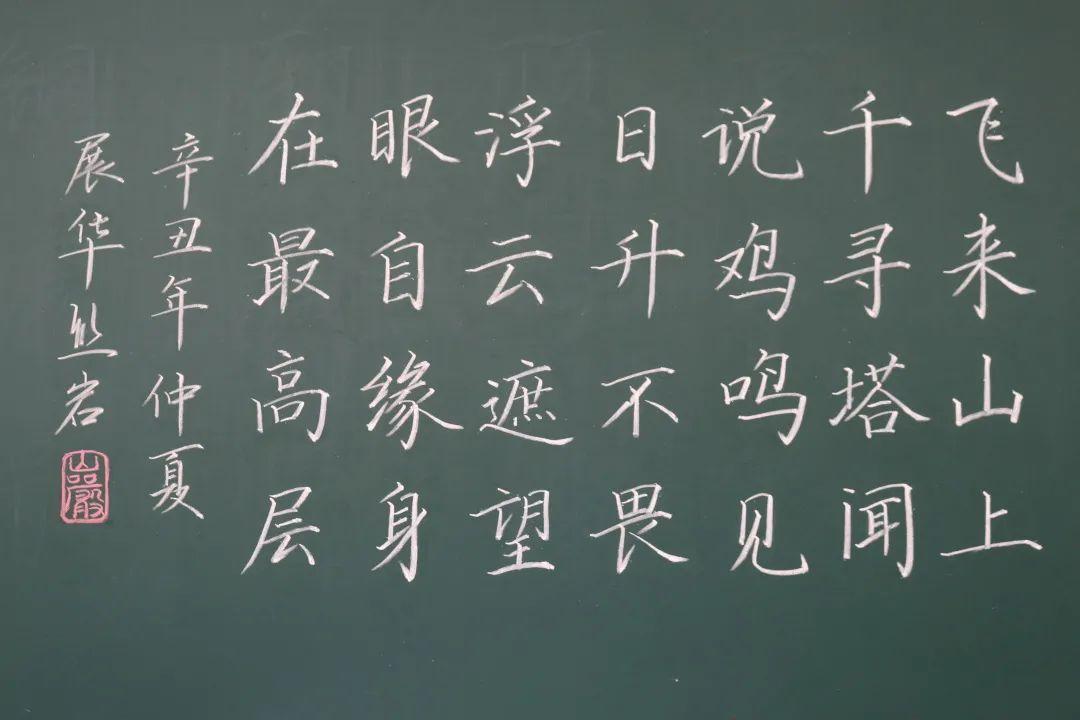 飞来山上
千寻塔闻
说鸡鸣见
日升不畏
浮云遮望
眼自缘身
在最高层
辛丑年仲夏
展华丝岩